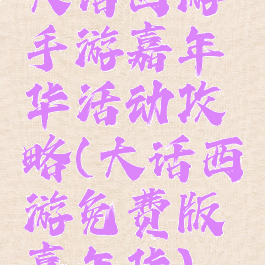 大话西游
手游嘉年
华活动攻
略(大话西
游免费版
嘉年华)